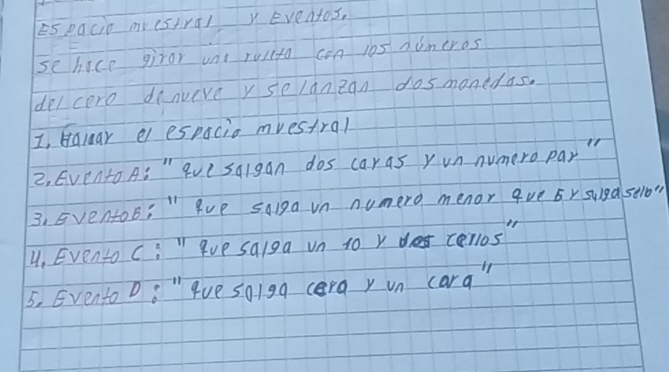 Espacio muestral y Eventos.
se hace girar una ruleta con los números
del cero al nueve y se lanzan dos monedas.
1. Hallar el espacio muestral
2. Evento A: "que salgan dos caras y un numero par"
3. Evento B: "que salga un numero menor que 5 y salga sello"
4. Evento C: "que salga un 10 y dos cellos"
5. Evento D: "que salga cero y un cara"